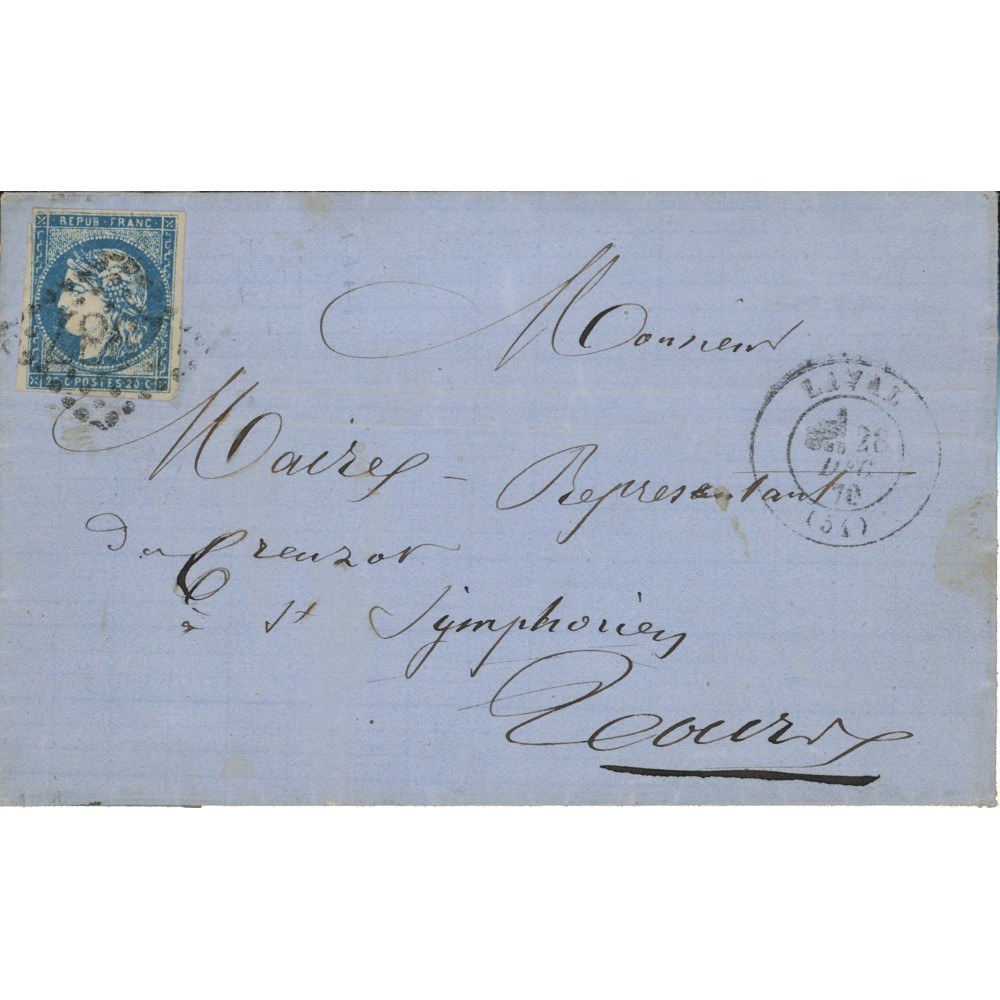 REPUB · FRANC
20 C POSTES · 20 C
Monsieur
LAVAL
28
DEC.
70
(51)
Maires - Representant
du Creuzot
à St Symphorien
Tours